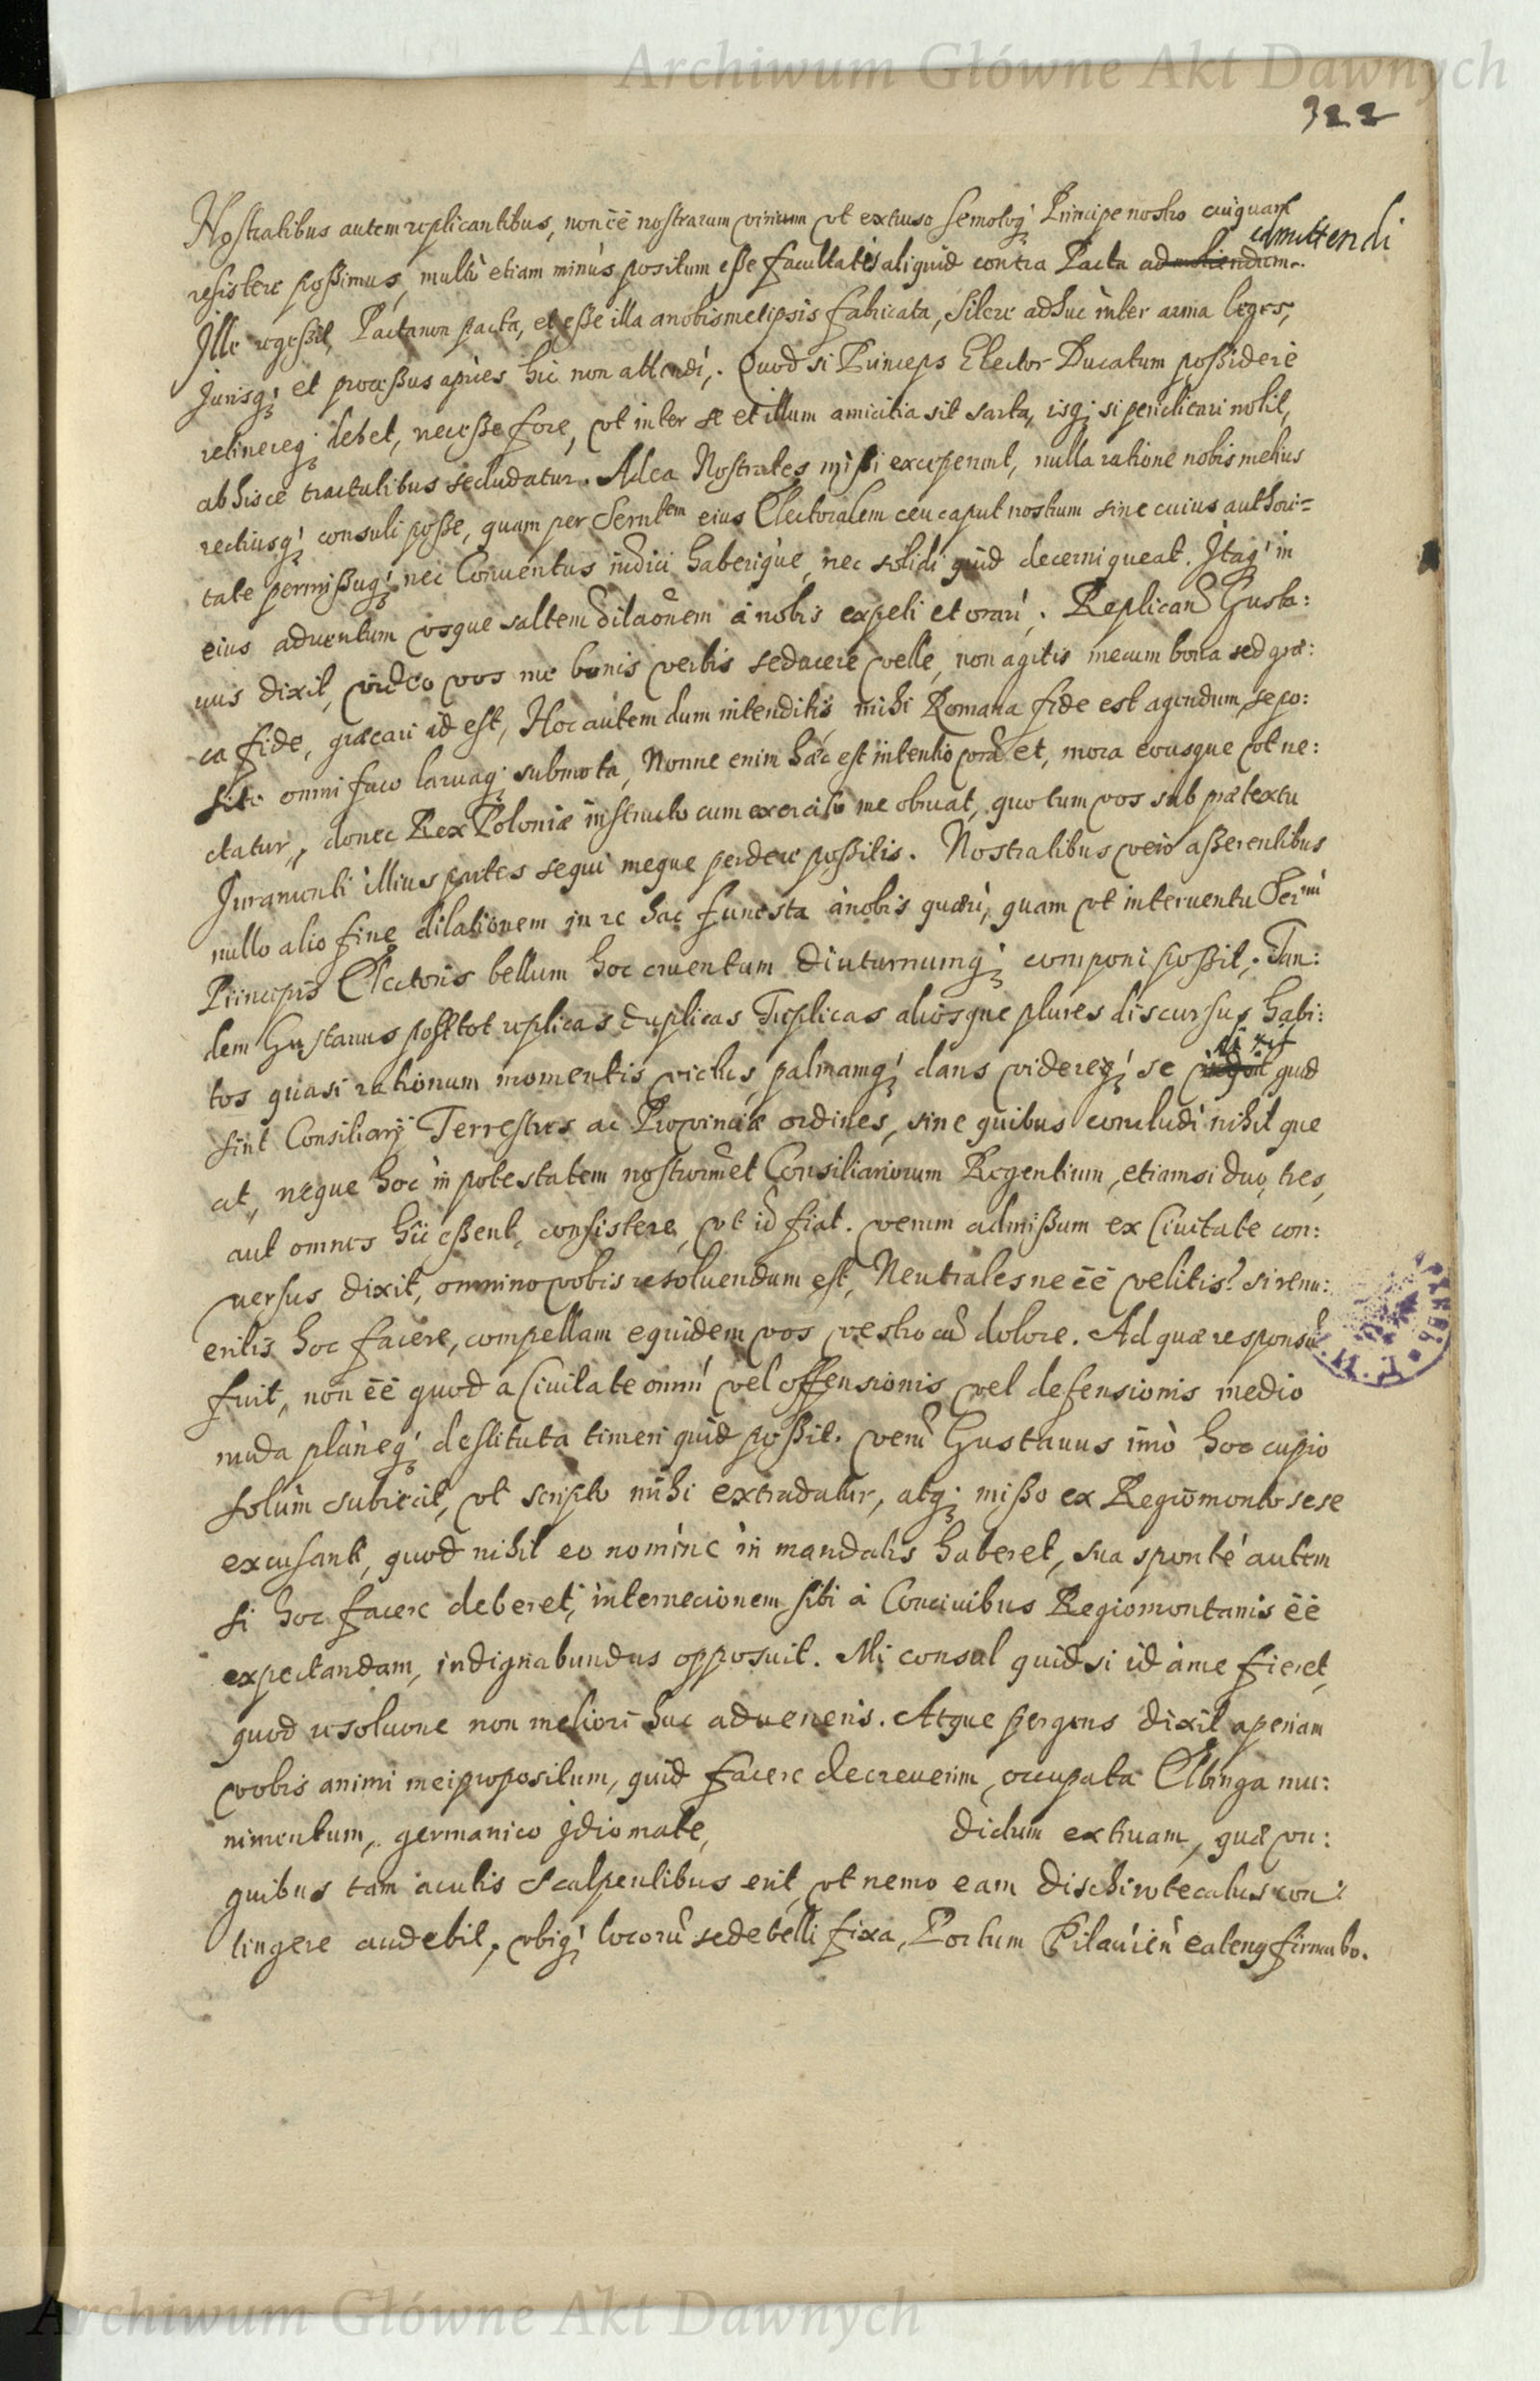 Archiwum Główne Akt Dawnych
322
Nostralibus autem replicantibus, non ēē nostrarum virium vt extruso semotoq; Principe nostro cuiquam
resistere possimus, multò etiam minùs positum esse facultatis aliquid contra Pacta admittendi
Ille regessit, Pacta non pacta, et esse illa a nobismetipsis fabricata, silere adhuc inter arma leges,
Jurisq; et processus apices hic non attendi,. Quod si Princeps Elector Ducatum possidere
retinereq; debet, necesse fore, vt inter se et illum amicitia sit sarta, isq; si periclitari nolit,
ab hisce tractatibus secludatur. Ad ea Nostrates missi exceperunt, nulla ratione nobis melius
rectiusq; consuli posse, quam per Serntem eius Electoralem ceu caput nostrum sine cuius authori=
tate permissuq; nec Conuentus indici haberique, nec solidi quid decerni queat. Itaq; in
eius aduentum vsque saltem dilaōnem à nobis expeti et orari,. Replicand Gusta:
uus dixit, video vos me bonis verbis seducere velle, non agitis mecum bona sed græ:
ca fide, græcari id est, Hoc autem dum intenditis mihi Romana fide est agendum, sepo:
sito omni fuco laruaq; submota, Nonne enim hæc est intentio vra et, mora eousque vt ne:
ctatur,, donec Rex Poloniæ instructo cum exercitu me obruat, quo tum vos sub prætextu
Juramenti illius partes sequi meque perdere possitis. Nostralibus vero asserentibus
nullo alio fine dilationem in re hac funesta à nobis quæri, quam vt interuentu Sermi
Principis Electoris bellum hoc cruentum diuturnumq; componi possit,. Tan:
dem Gustauus post tot replicas duplicas Triplicas aliosque plures discursus habi:
tos quasi rationum momentis victus, palmamq; dans videreq; se dixit quid
sint Consiliarij Terrestres ac Prouinciæ ordines, sine quibus concludi nihil que
at, neque hoc in potestatem nostrormet Consiliariorum Regentium, etiamsi duo, tres,
aut omnes hic essent, consistere, vt id fiat. verum ad missum ex Ciuitate con:
uersus dixit, omnino vobis resoluendum est, Neutrales ne ēē velitis? si renu:
eritis hoc facere, compellam equidem vos vestro cū dolore. Ad quæ responsū
fuit, non ēē quod a Ciuitate omni vel offensionis vel defensionis medio
nuda planeq; destituta timeri quid possit. verū Gustauus imò hoc cupio
solùm subiecit, vt scripto mihi extradatur, atq; misso ex Regiomonto sese
excusante, quod nihil eo nomine in mandatis haberet, sua sponte autem
si hoc facere deberet, internecionem sibi à Conciuibus Regiomontanis ēē
expectandam, indignabundus opposuit. Mi consul quid si id à me fieret,
quod resoluōne non meliori huc adueneris. Atque pergens dixit aperiam
vobis animi mei propositum, quid facere decreuerim, occupata Elbinga mu:
nimentum, germanico idiomate, dictum extruam, quæ vn:
guibus tam acutis scalpentibus erit, vt nemo eam dischirotecatus con:
tingere audebit, vbiq; locorū sede belli fixa, Portum Pilauiēn eatenq firmabo.
Archiwum Główne Akt Dawnych